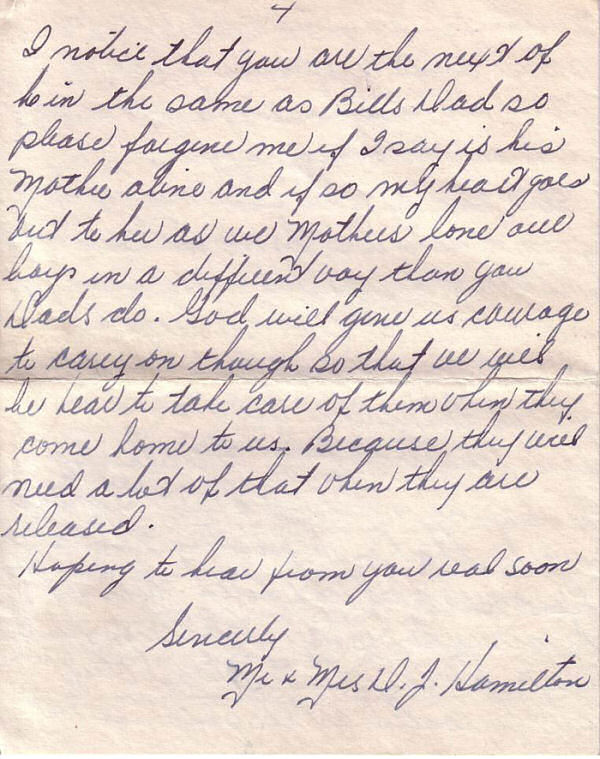 4
I notice that you are the next of
kin the same as Bills Dad so
please forgive me if I say is his
Mother alive and if so my heart goes
out to her as we Mothers love our
boys in a different way than you
Dads do. God will give us courage
to carry on though so that we will
be hear to take care of them when they
come home to us. Because they will
need a lot of that when they are
released.
Hoping to hear from you real soon
Sincerly
Mr & Mrs D. J. Hamilton